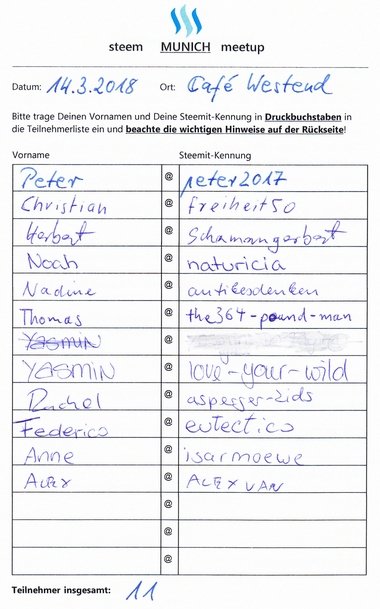 steem MUNICH meetup
Datum: 14.3.2018 Ort: Café Westend
Bitte trage Deinen Vornamen und Deine Steemit-Kennung in Druckbuchstaben in
die Teilnehmerliste ein und beachte die wichtigen Hinweise auf der Rückseite!
Vorname Steemit-Kennung
Peter @ peter2017
Christian @ freiheit50
Herbert @
Noah @ naturicia
Nadine @ antibesdenken
Thomas @ the364-pound-man
YASMIN @
YASMIN @ love-your-wild
Rachel @ asperger-kids
Federico @ eutectico
Anne @ isarmoewe
ALEX @ ALEXVAN
@
@
@
Teilnehmer insgesamt: 11